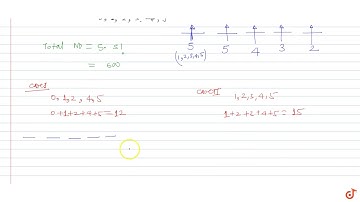 Total NO = 5. 5!
= 600
5 5 4 3 2
(1,2,3,4,5)
CASE I
0,1,2,4,5
0+1+2+4+5=12
CASE II
1,2,3,4,5
1+2+2+4+5=15